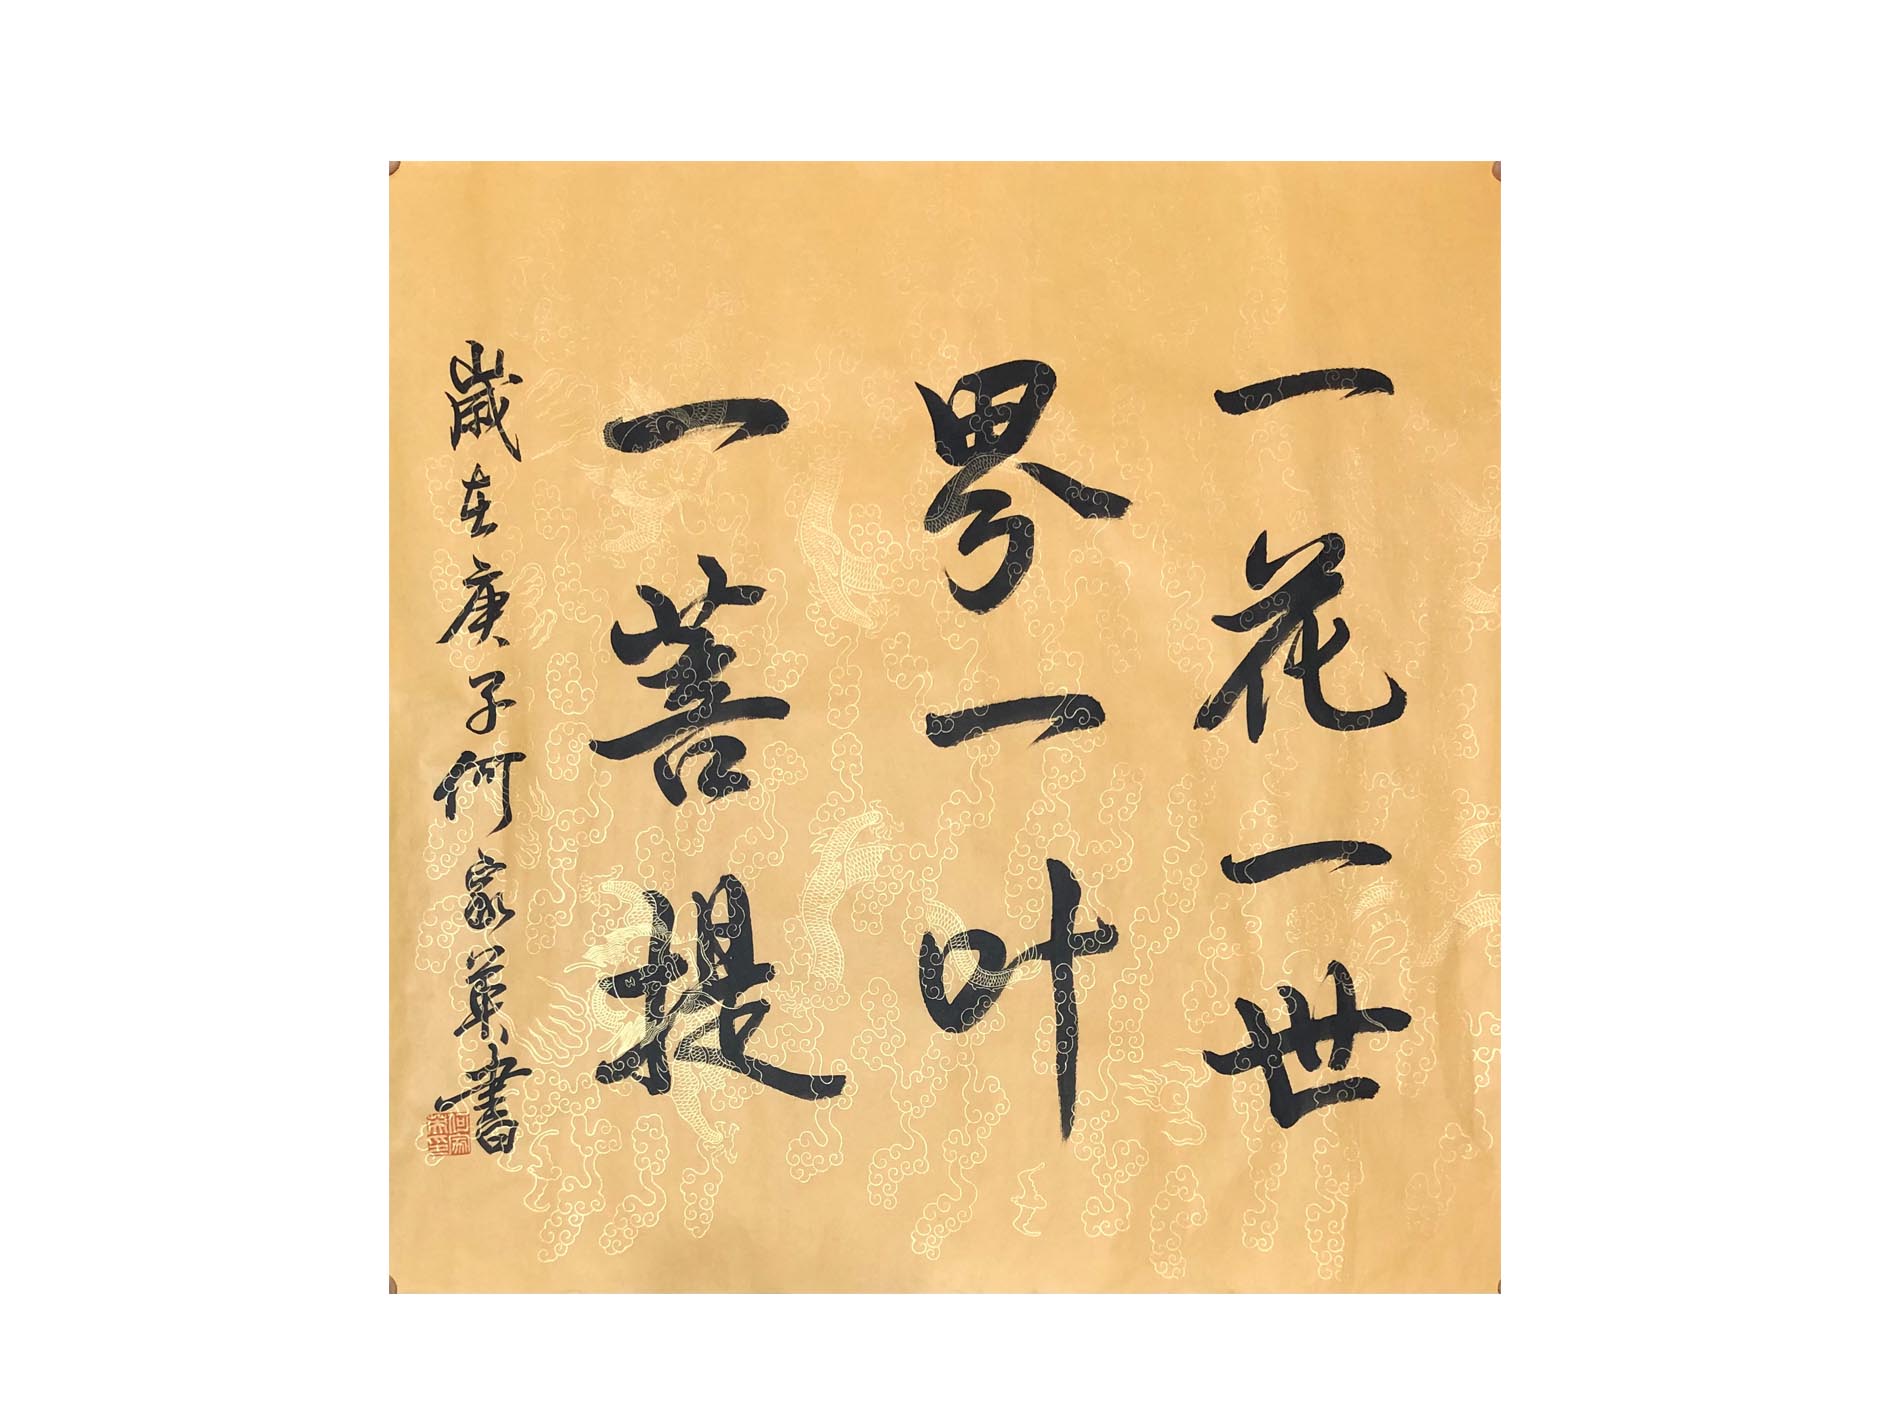 一花一世
界一叶
一菩提
歲在庚子何家英書